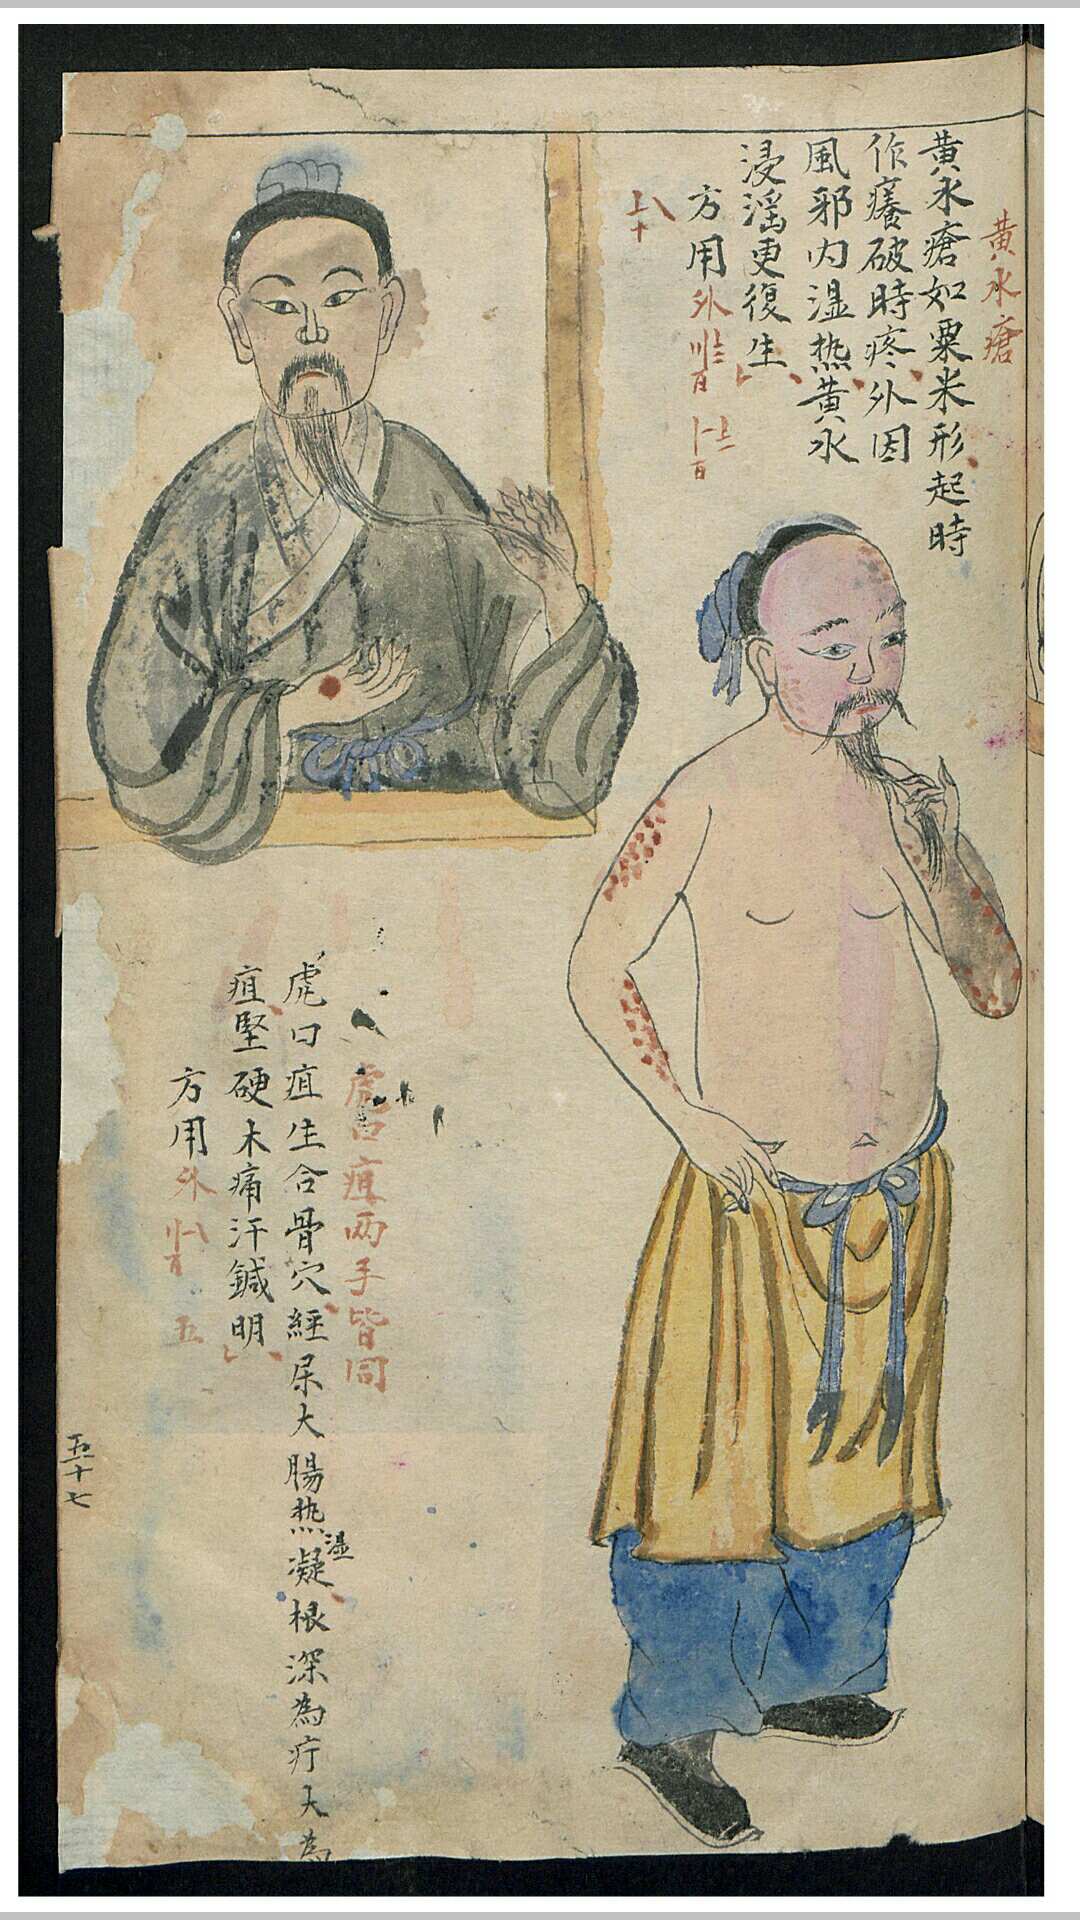 黄水瘡
黄水瘡如粟米形起時
作癢破時疼外因
風邪内湿热黄水
浸淫更復生
方用外
虎口疽两手皆同
虎口疽生合骨穴經屎大腸热湿凝根深為疔大為
疽堅硬木痛汗鍼明
方用外 五
五十七